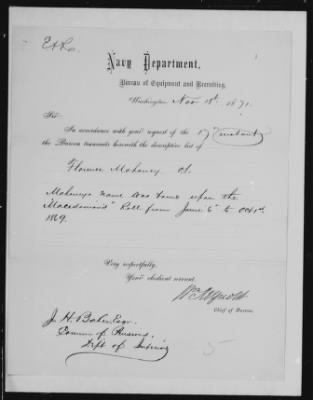 Navy Department,
Bureau of Equipment and Recruiting,
Washington, Nov 18th 1871.
Sir:
In accordance with your request of the 17 instant
the Bureau transmits herewith the descriptive list of
Florence Mahoney
Mahoneys name was borne upon the
"Macedonian's" Roll from June 6" to Oct 1st
1869.
Very respectfully,
Your obedient servant,
Chief of Bureau.
J. H. Baker Esqr.
Commr of Pensions.
Dept of Interior
5